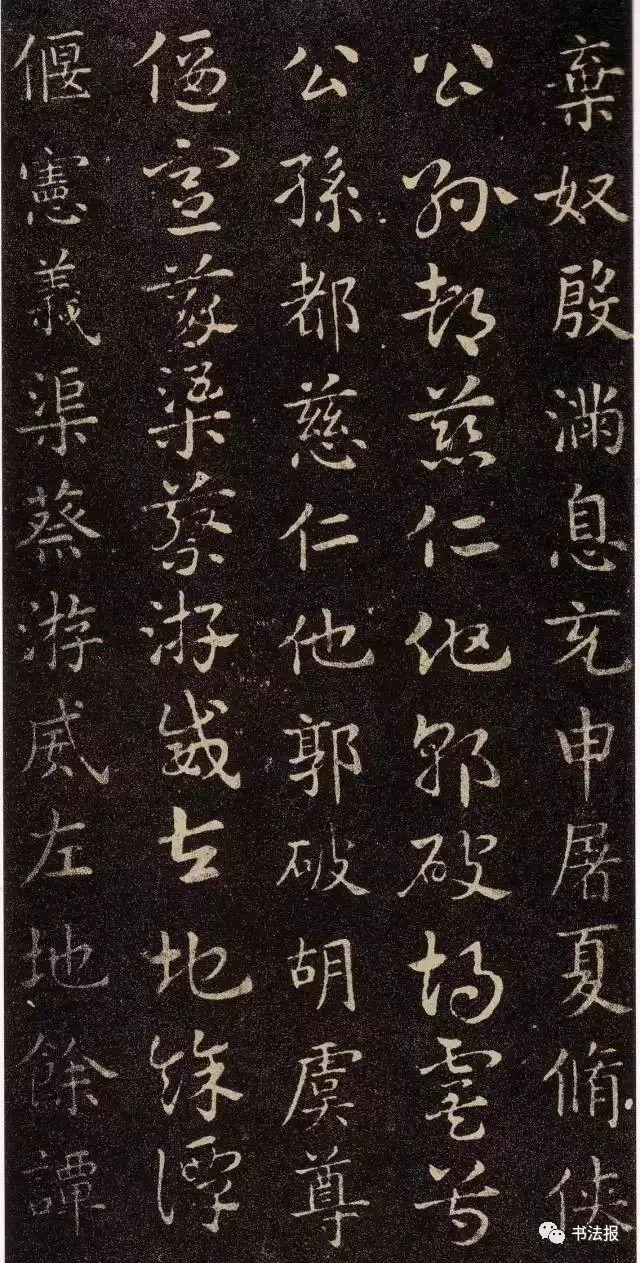 棄奴殷滿息充申屠夏脩俠
公孫都慈仁他郭破胡虞尊
公孫都慈仁他郭破胡虞尊
偃憲義渠蔡游威左地餘譚
偃憲義渠蔡游威左地餘譚
书法报